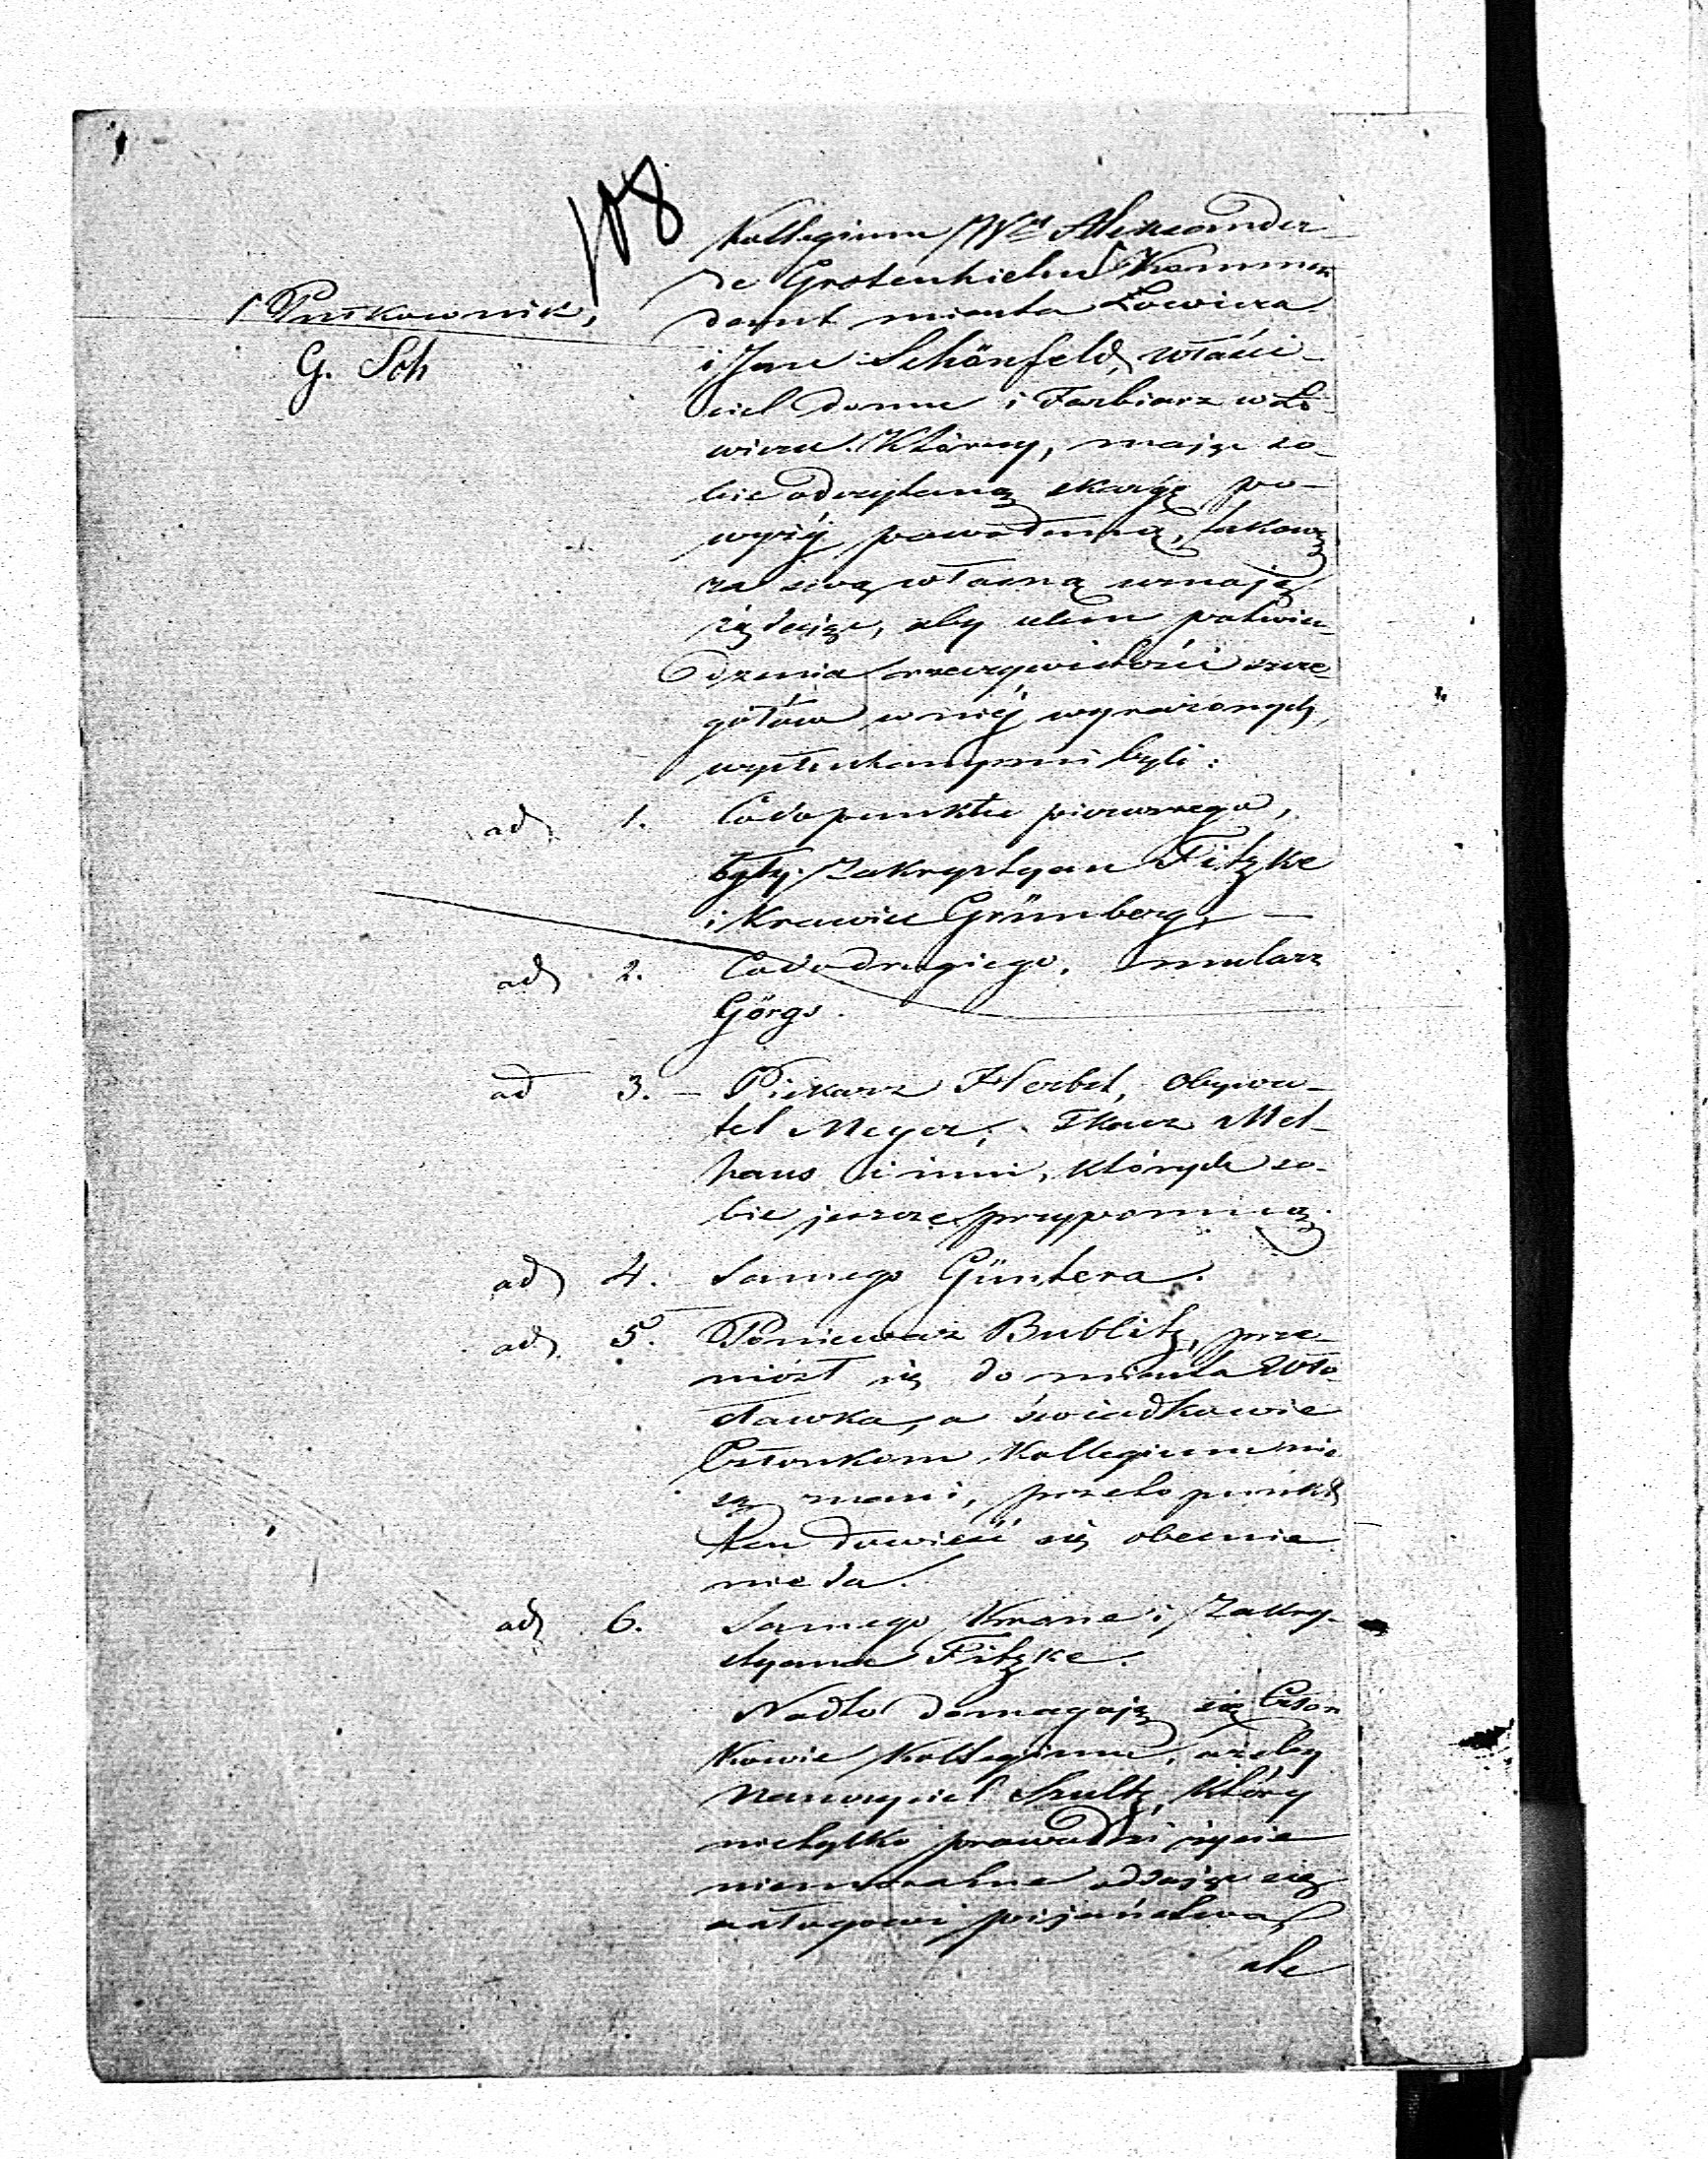 108
Kollegium Wny Alexander
de Grotenhielm ſ Kommen
ſ Pułkownik,
dant miasta Łowicza
i Jan Schönfeld, właści-
G. Sch
ciel domu i Farbiarz w Ło-
wiczu. Którzy, mając so-
bie odczytaną skargę po-
wyżéj powołaną, takową
za swą własną uznają
żądając, aby celem potwier-
dzenia rzeczywistości szcze-
gółów w niéj wyrażonych,
wysłuchanymi byli:
ad 1. Co do punktu pierwszego,
były Zakrystyan Fitzke
i Krawiec Grünberg, —
ad 2. Co do drugiego, mularz
Görgs.
ad 3. — Piekarz Herbst, obywa-
tel Meyer, Tkacz Mel-
haus i inni, których so-
bie jeszcze przypomną.
ad 4. Samego Güntera.
ad 5. Ponieważ Bublitz, prze-
niósł się do miasta Wło-
cławka, a świadkowie
Członkom Kollegium nie
są znani, przeto punkt
ten dowieść się obecnie
nie da.
ad 6. Samego Krane i Zakry-
styana Fitzke.
Nadto domagają się Człon
kowie Kollegium, ażeby
Nauczyciel Szultz, który
nietylko prowadzi życie
niemoralne oddając się
nałogowi pijaństwa,
ale